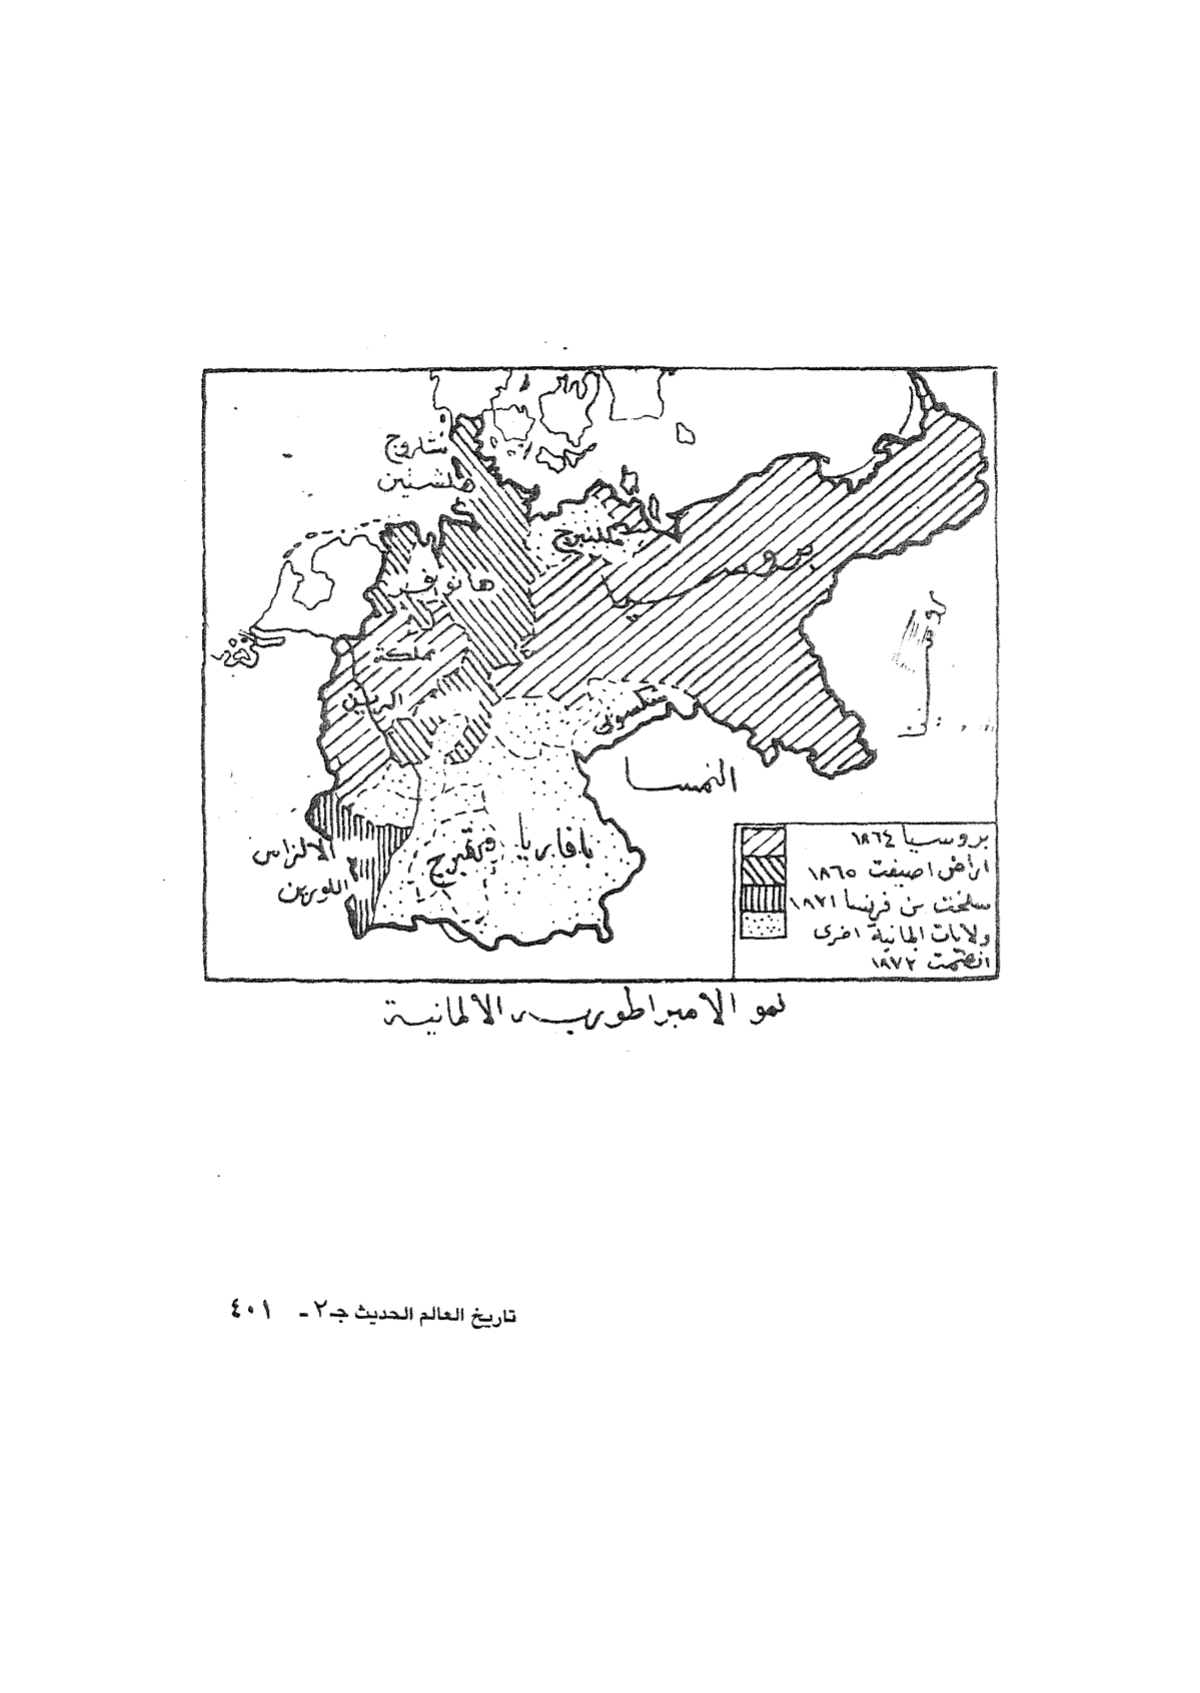 شلزوج
هلشتين
مكلنبرج
هانوفر
بروسيا
مملكة
الرين
سكسونى
النمسا
الالزاس
اللورين
بافاريا
بروسيا ١٨٦٤
اراض اضيفت ١٨٦٥
سلخت من فرنسا ١٨٧١
ولايات المانية اخرى
انضمت ١٨٧٢
نمو الامبراطورية الالمانية
تاريخ العالم الحديث جـ٢ ـ ٤٠١